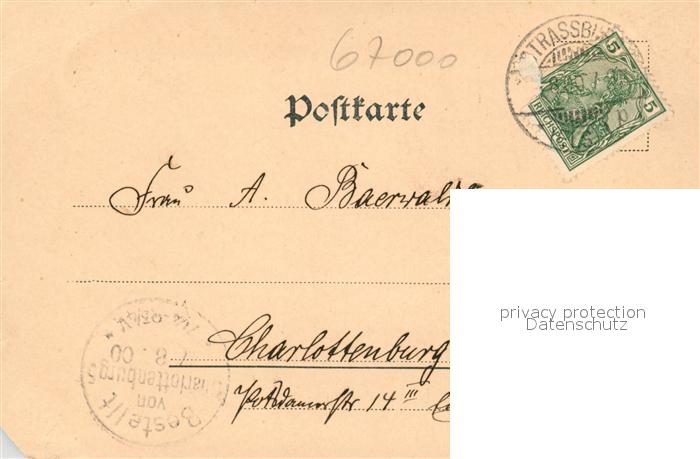 67000
Postkarte
STRASSB
5
5
REICHSPOST
Frau A. Baerwald
privacy protection
Datenschutz
Charlottenburg
Potsdamerstr 14 III
Bestellt
von
Charlottenburg 5
8.00